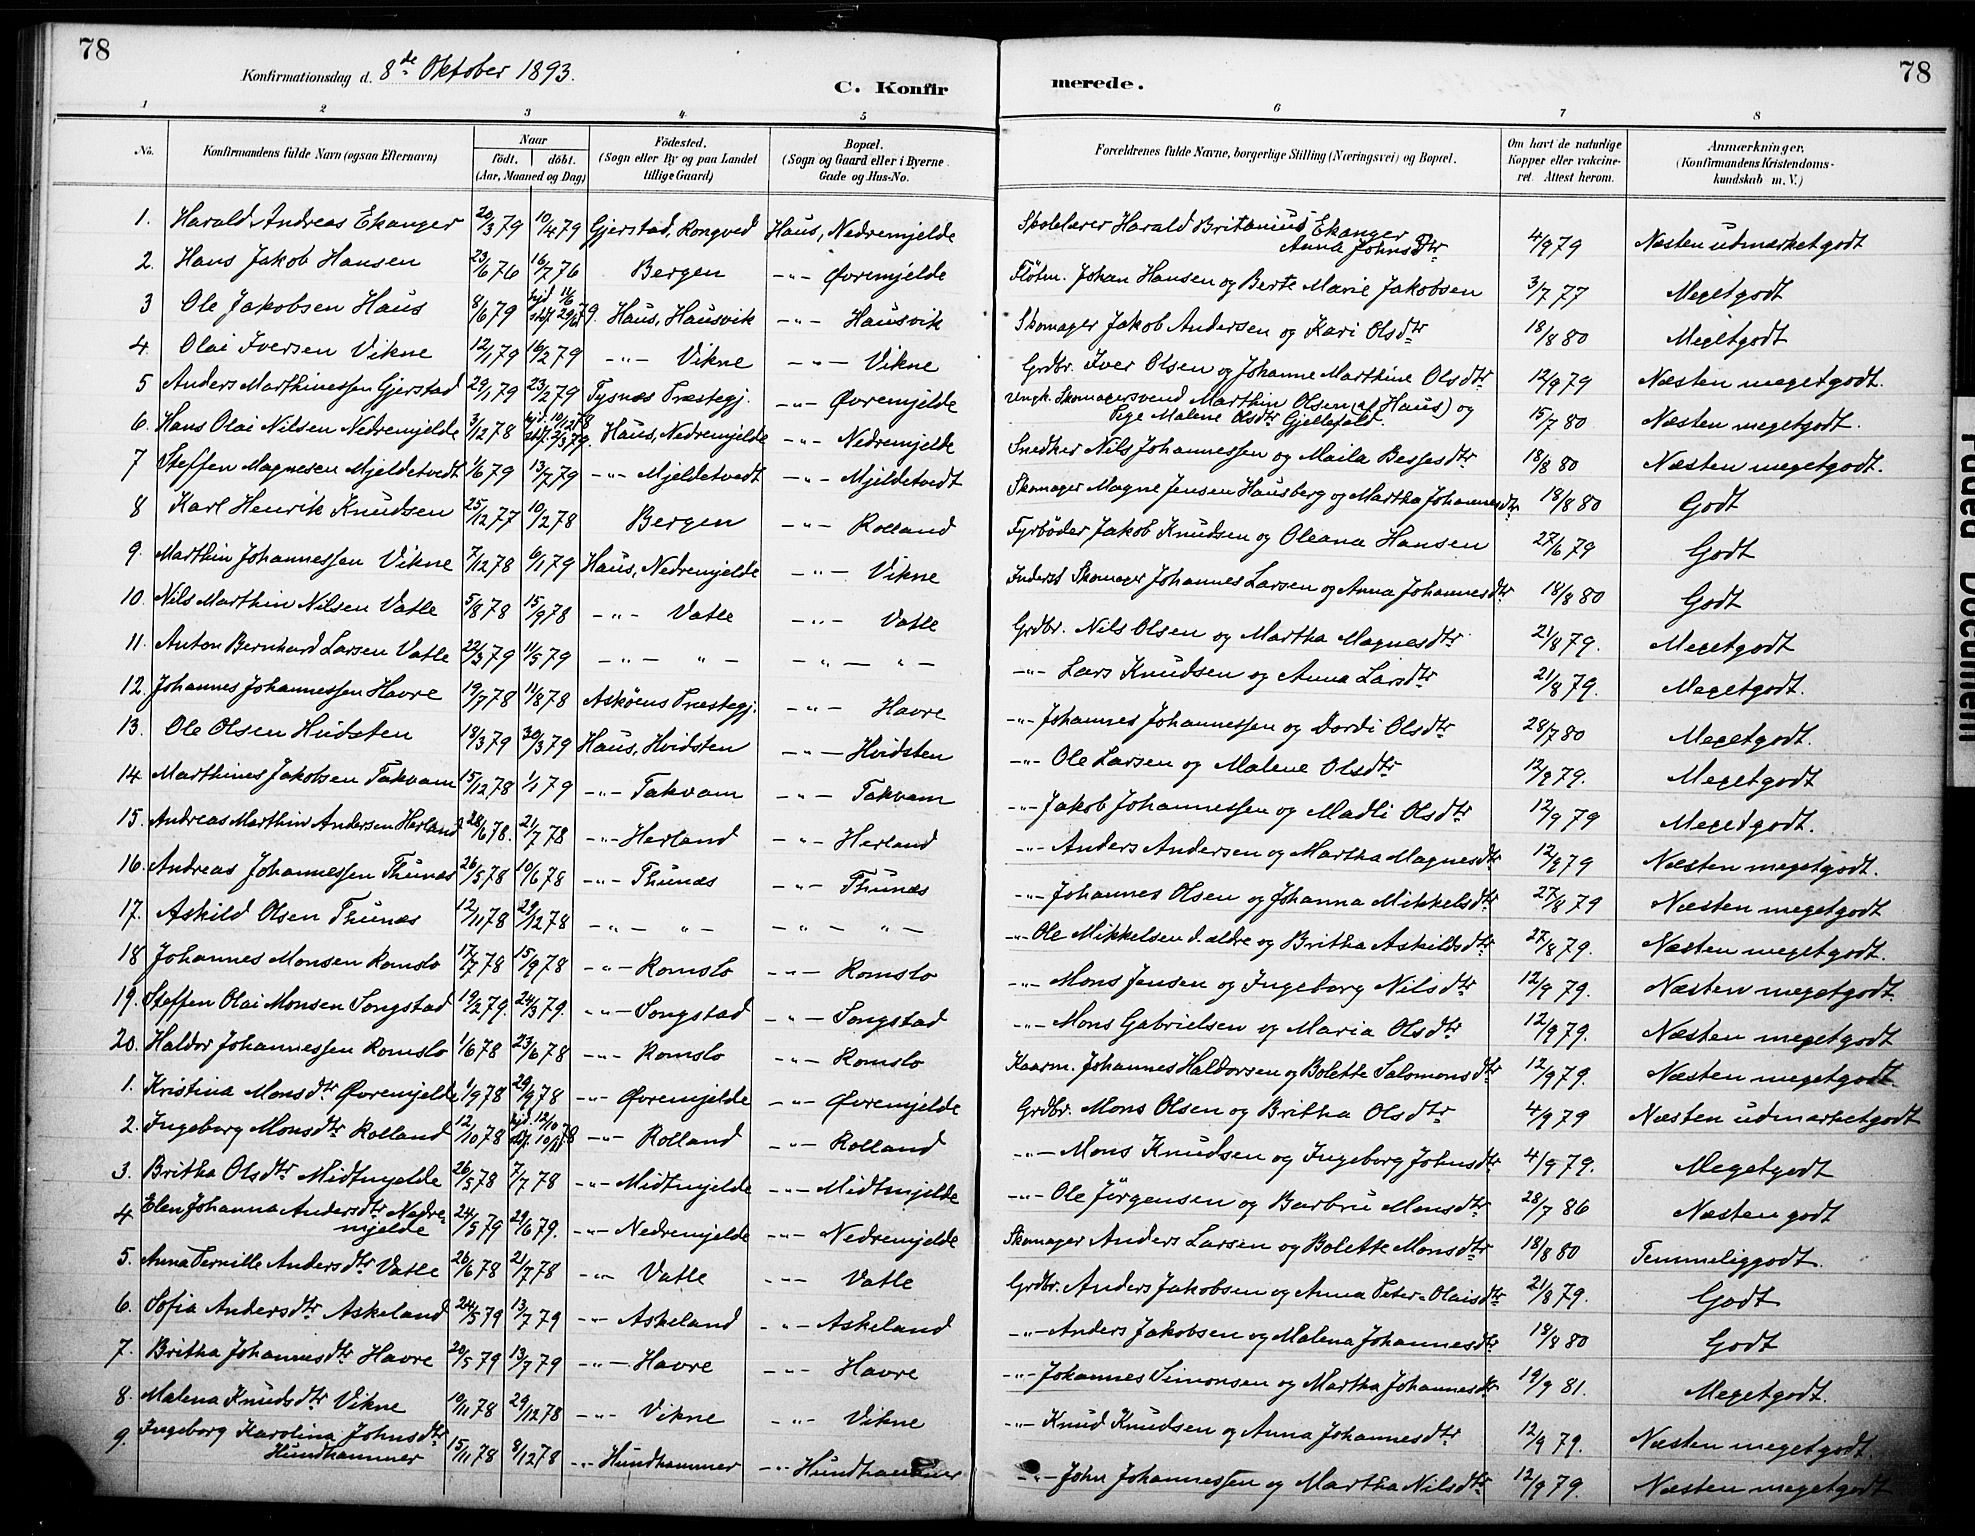 78
Konfirmationsdag d. 8de Oktober 1893.
C. Konfirmerede.
78
1 2 3 4 5 6 7 8
No. Konfirmandens fulde Navn (ogsaa Efternavn) Naar födt. döbt. (Aar, Maaned og Dag) Födested. (Sogn eller By og paa Landet tillige Gaard) Bopæl. (Sogn og Gaard eller i Byerne Gade og Hus-No. Forældrenes fulde Navne, borgerlige Stilling (Næringsvei) og Bopæl. Om havt de naturlige Kopper eller vaccineret. Attest herom. Anmærkninger, (Konfirmandens Kristendomskundskab m. V.)
1. Harald Andreas Ekanger 20/3 79 10/4 79 Gjerstad, Rongved Haus, Nedremjelde Skolelærer Harald Britanius Ekanger Anna Johnsdtr 4/9 79 Næsten udmærketgodt
2. Hans Jakob Hansen 23/6 76 16/7 76 Bergen -"- Øvremjelde Flötm. Johan Hansen og Berte Marie Jakobsen 3/7 77 Megetgodt
3 Ole Jakobsen Haus 8/6 79 hjd 11/6 stdf. 29/6 79. Haus, Hausvik -"- Hausvik Skomager Jakob Andersen og Kari Olsdtr 18/8 80 Megetgodt
4. Olai Iversen Vikne 12/1 79 16/2 79 -"- Vikne -"- Vikne Grdbr. Iver Olsen og Johanne Marthine Olsdtr 12/9 79 Næsten megetgodt.
5 Anders Marthinessen Gjerstad 29/1 79 23/2 79 Tysnæs Præstegj. -"- Øvremjelde Skomagersvend Marthin Olsen (af Haus) og Pige Malene Olsdtr Gjellefald. 15/7 80 Næsten megetgodt.
6. Hans Olai Nilsen Nedremjelde 3/12 78 hjd. 10/12 78 stdf. 2/3 79. Haus, Nedremjelde -"- Nedremjelde Snedker Nils Johannessen og Maila Bessesdtr 18/8 80 Næsten megetgodt.
7 Steffen Magnesen Mjeldetvedt 1/6 79 13/7 79 -"- Mjeldetvedt -"- Mjeldetvedt Skomager Magne Jensen Hausberg og Martha Johannesdtr 18/8 80 Godt
8 Karl Henrik Knudsen 25/12 77 10/2 78 Bergen -"- Rolland Fyrböder Jakob Knudsen og Oleana Hansen 27/6 79 Godt
9. Marthin Johannessen Vikne 7/12 78 6/1 79 Haus, Nedremjelde -"- Vikne Inderst Skomager Johannes Larsen og Anna Johannesdtr 18/8 80 Godt
10. Nils Marthin Nilsen Vatle 5/8 78 15/9 78 -"- Vatle -"- Vatle Grdbr. Nils Olsen og Martha Magnesdtr 21/8 79. Megetgodt
11. Anton Bernhard Larsen Vatle 22/3 79 11/5 79 -"- "- -"- "- -"- Lars Knudsen og Anna Larsdtr 21/8 79. Megetgodt.
12. Johannes Johannessen Havre 19/7 78 11/8 78 Askøens Præstegj. -"- Havre -"- Johannes Johannessen og Dordi Olsdtr 28/7 80 Megetgodt.
13. Ole Olsen Hvidsten 18/3 79 30/3 79 Haus, Hvidsten -"- Hvidsten -"- Ole Larsen og Malene Olsdtr 12/9 79. Megetgodt
14. Marthines Jakobsen Takvam 15/12 78 1/1 79 -"- Takvam -"- Takvam -"- Jakob Johannessen og Madli Olsdtr 12/9 79 Megetgodt.
15. Andreas Marthin Andersen Herland 28/6 78. 21/7 78 -"- Herland -"- Herland -"- Anders Andersen og Martha Magnesdtr 12/9 79 Næsten megetgodt.
16. Andreas Johannessen Thunæs 26/5 78 10/6 78 -"- Thunæs -"- Thunæs -"- Johannes Olsen og Johanna Mikkelsdtr 27/8 79 Næsten megetgodt
17. Askild Olsen Thunæs 12/11 78 29/12 78 -"- "- -"- "- -"- Ole Mikkelsen d. ældre og Britha Askildsdtr 27/8 79. Næsten megetgodt.
18 Johannes Monsen Romslo 17/7 78 15/9 78 -"- Romslo -"- Romslo -"- Mons Jensen og Ingeborg Nilsdtr 12/9 79. Næsten megetgodt.
19. Steffen Olai Monsen Songstad 19/2 79. 24/3 79. -"- Songstad -"- Songstad -"- Mons Gabrielsen og Maria Olsdtr 12/9 79. Næsten megetgodt
20. Haldor Johannessen Romslo 1/6 78 23/6 78 -"- Romslo -"- Romslo Kaarm. Johannes Haldorsen og Bolette Salomonsdtr 12/9 79. Næsten megetgodt
1. Kristina Monsdtr Øvremjelde 1/9 78 29/9 78 -"- Øvremjelde -"- Øvremjelde Grdbr. Mons Olsen og Britha Olsdtr 4/9 79 Næsten udmærketgodt
2. Ingeborg Monsdtr Rolland 12/10 78 hjd. 12/10 78 -"- Rolland -"- Rolland -"- Mons Knudsen og Ingeborg Johnsdtr 4/9 79. Megetgodt
3. Britha Olsdtr Midtmjelde 26/5 78 7/7 78 -"- Midtmjelde -"- Midtmjelde -"- Ole Jörgensen og Barbru Monsdtr 28/7 86 Næsten godt
4 Elen Johanna Andersdtr Nedremjelde 24/5 79 29/6 79. -"- Nedremjelde -"- Nedremjelde Skomager Anders Larsen og Bolette Monsdtr 18/8 80 Temmeliggodt.
5. Anna Pernille Andersdtr Vatle 26/6 78 21/7 78 -"- Vatle -"- Vatle Grdbr. Anders Jakobsen og Anna Peter-Olaisdtr 21/8 79. Godt
6. Sofia Andersdtr Askeland 24/5 79 13/7 79 -"- Askeland -"- Askeland -"- Anders Jakobsen og Malena Johannesdtr 18/8 80 Godt
7. Britha Johannesdtr Havre 20/5 79 13/7 79 -"- Havre -"- Havre -"- Johannes Simonsen og Martha Johannesdtr 19/9 81. Megetgodt.
8. Malena Knudsdtr Vikne 10/11 78 29/12 78 -"- Vikne -"- Vikne -"- Knud Knudsen og Anna Johannesdtr 12/9 79. Næsten megetgodt.
9. Ingeborg Karolina Johnsdtr Hundhammer 15/11 78 8/12 78 -"- Hundhammer -"- Hundhammer -"- John Johannessen og Martha Nilsdtr 12/9 79. Næsten megetgodt
Faded Document